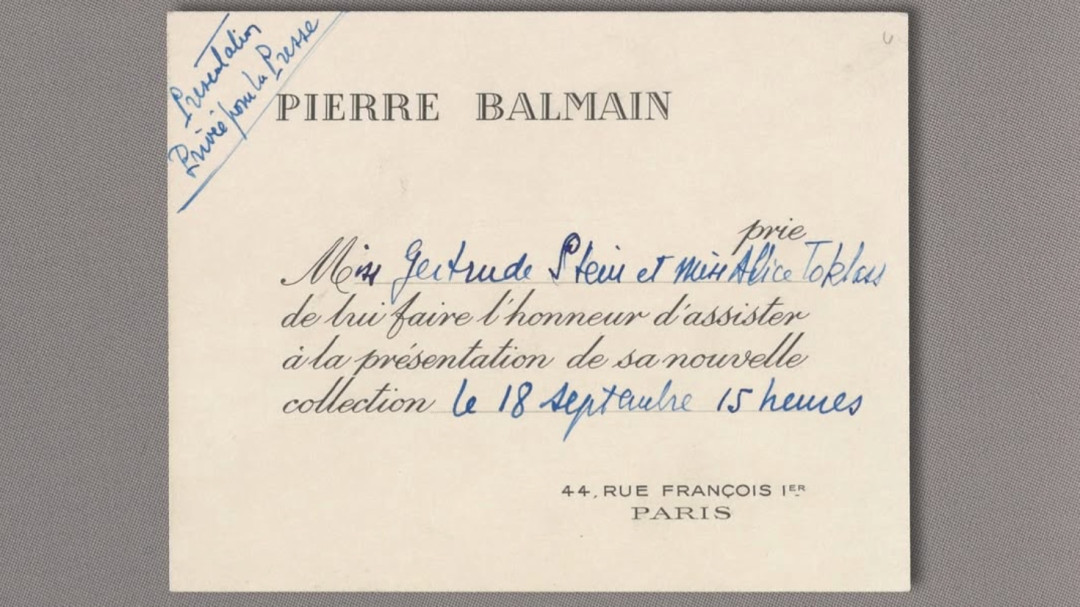 Presentation
Privée pour la Presse
PIERRE BALMAIN
prie
Miss Gertrude Stein et miss Alice Toklass
de lui faire l'honneur d'assister
à la présentation de sa nouvelle
collection le 18 septembre 15 heures
44, RUE FRANÇOIS IER
PARIS